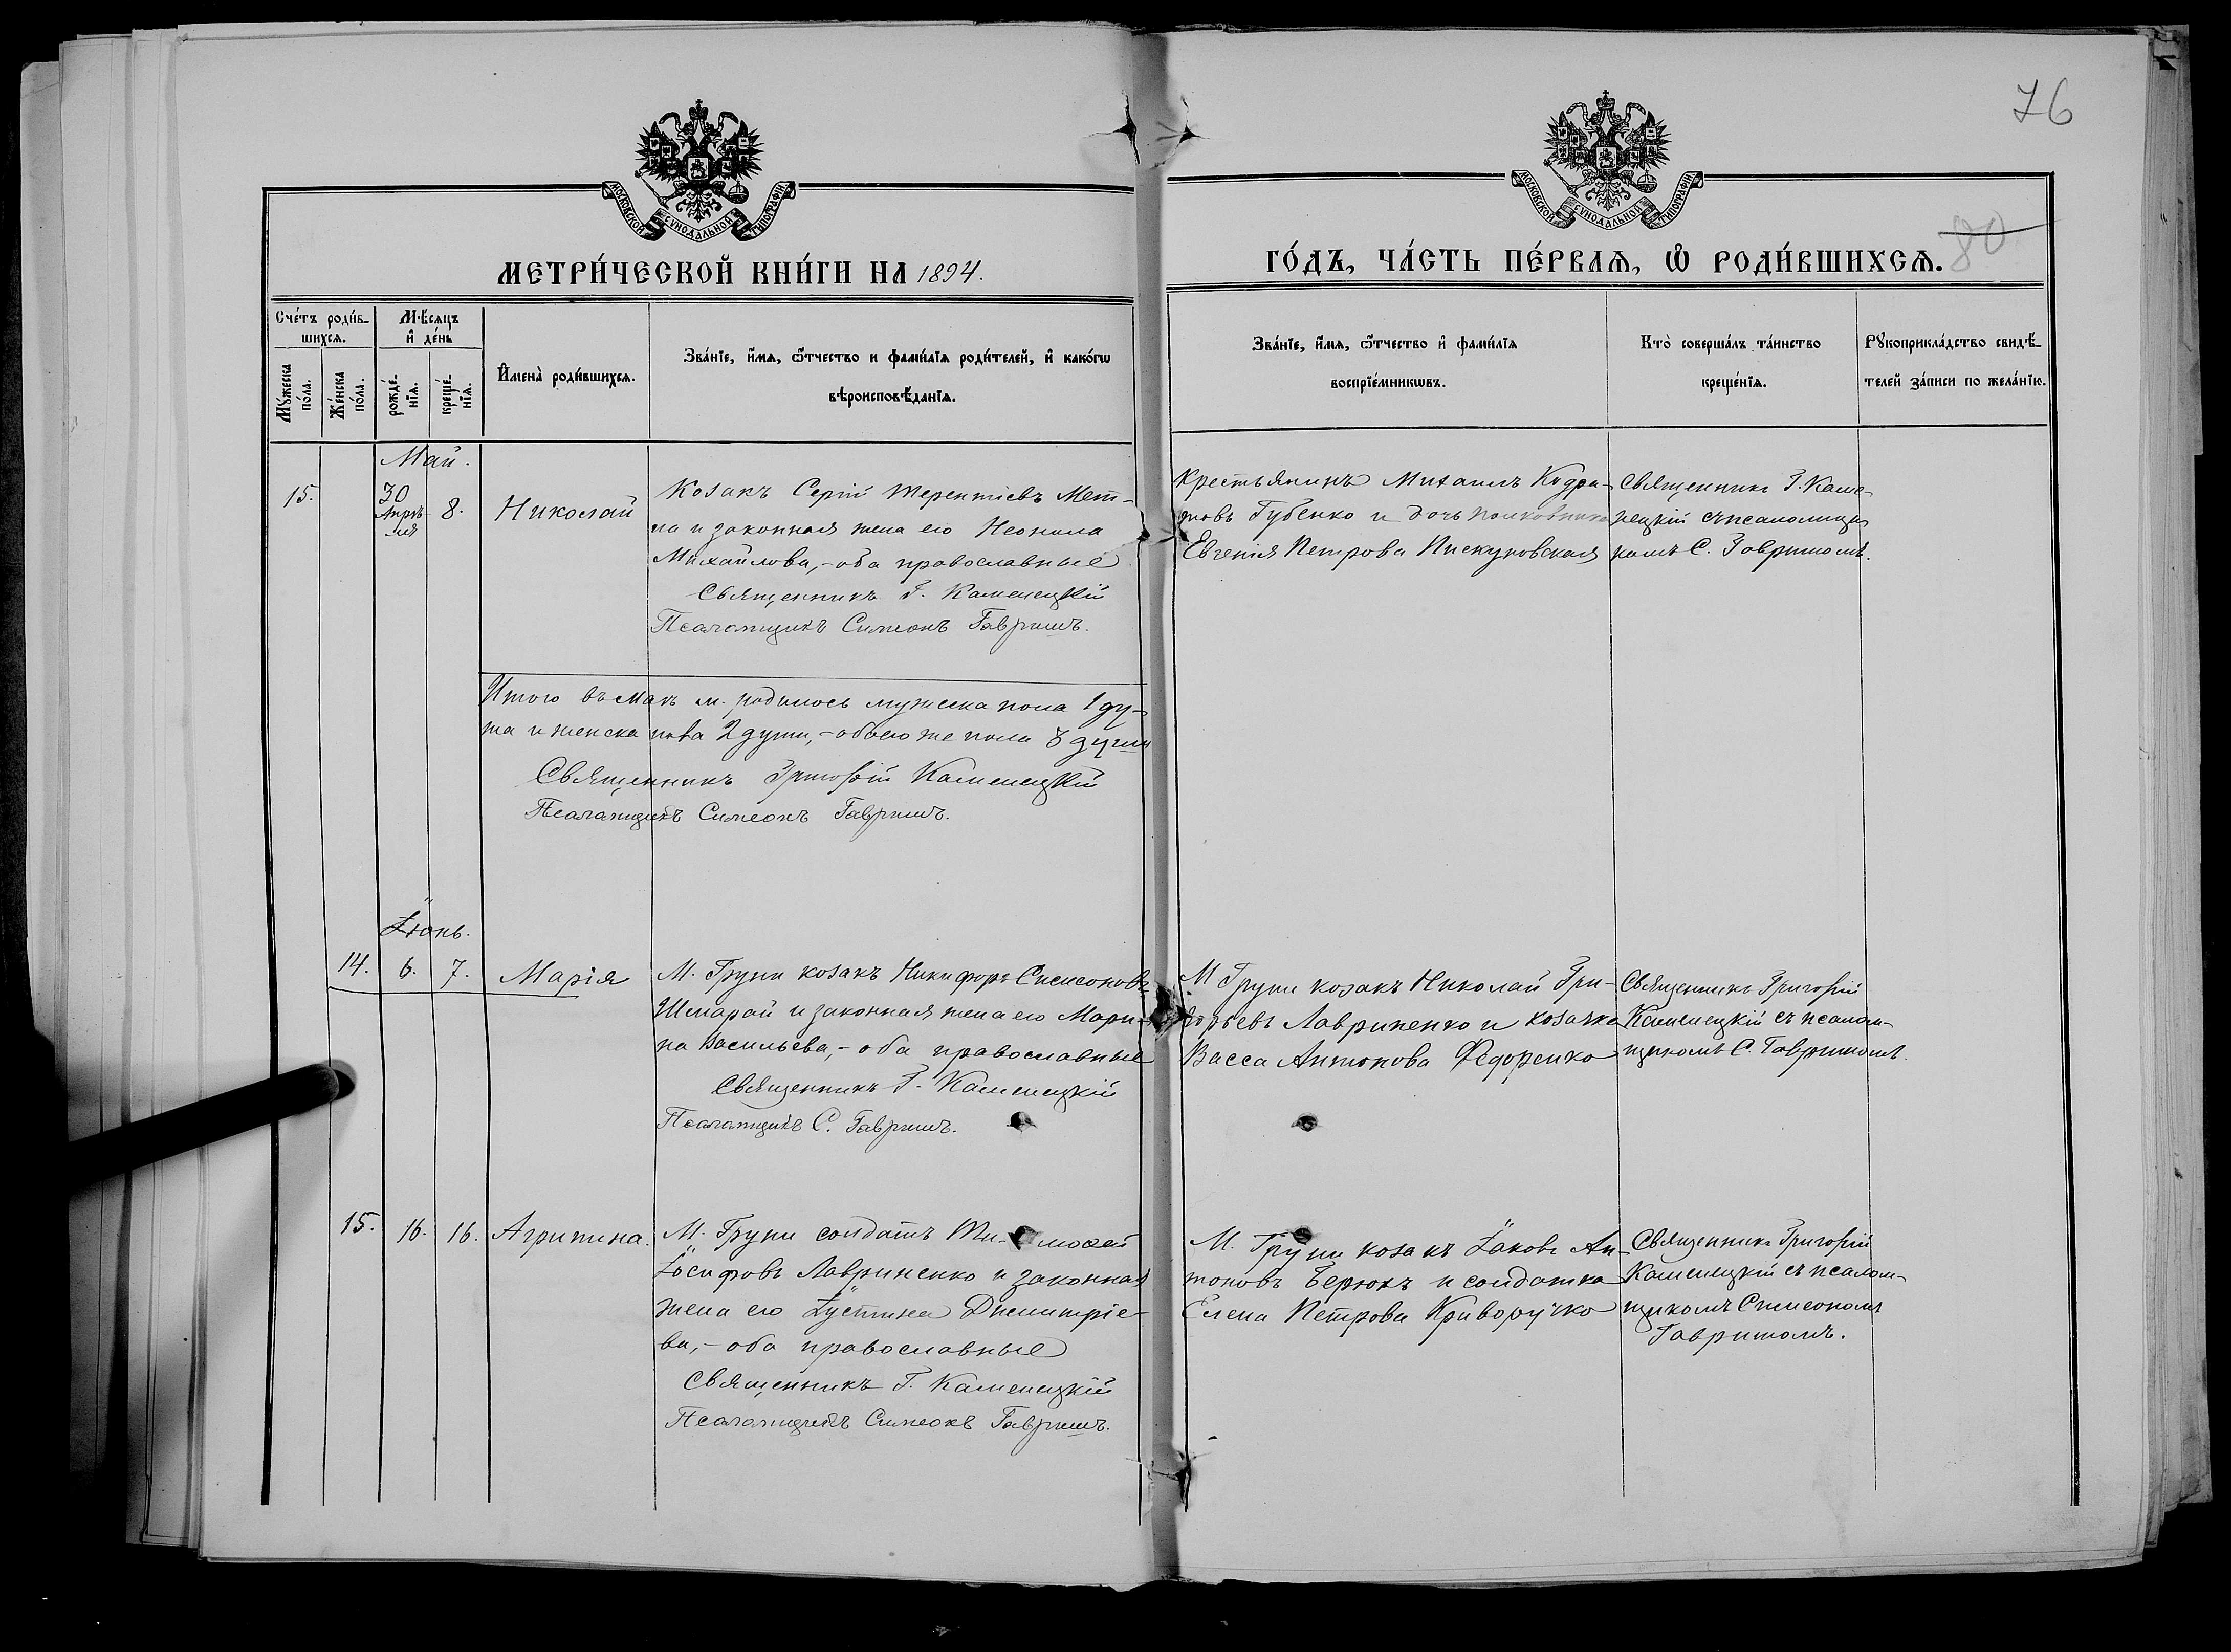 76
80
МОСКОВСКОЙ СѴНОДАЛЬНОЙ ТИПОГРАФІИ
МОСКОВСКОЙ СѴНОДАЛЬНОЙ ТИПОГРАФІИ
МЕТРИ́ЧЕСКОЙ КНИ́ГИ НА 1894.
ГО́ДЪ, ЧА́СТЬ ПЕ́РВАѦ, Ѽ РОДИ́ВШИХСѦ.
Сче́тъ роди́в-
шихсѧ.
Мꙋ́жеска по́ла.
Же́нска по́ла.
Мѣ́сѧцъ
и҆ де́нь
рожде́-
нїѧ.
креще́-
нїѧ.
И҆мена̀ роди́вшихсѧ.
Зва́нїе, и҆́мѧ, ѻ҆́тчество и фами́лїѧ роди́телей, и҆ како́гѡ
вѣроисповѣ́данїѧ.
Зва́нїе, и҆́мѧ, ѻ҆́тчество и҆ фами́лїѧ
воспрїе́мникѡвъ.
Кто̀ соверша́лъ та́инство
креще́нїѧ.
Рꙋкоприкла́дство свидѣ́-
телей за́писи по жела́нїю.
Май.
15.
30
Апрѣ-
ля
8.
Николай
Козакъ Сергій Терентіевъ Мет-
ла и законная жена его Неонила
Михайлова,-оба православные
Священникъ Г. Каменецкій
Псаломщикъ Симеонъ Гавришъ.
Крестьянинъ Михаилъ
Губенко и дочь полковника
Евгенія Петрова Пискуновская
Священникъ Г. Каме-
нецкій съ псаломщи-
комъ С. Гавришомъ.
Итого въ маѣ м. родилось мужеска пола 1 ду-
ша и женска пола 2 души,-обоего же пола 3 души
Священникъ Григорій Каменецкій
Псаломщикъ Симеонъ Гавришъ.
Іюнь.
14.
6.
7.
Марія
М. Груни козакъ Никифоръ Симеоновъ
Шмарай и законная жена его Мари-
на Васильева,-оба православные
Священникъ Г. Каменецкій
Псаломщикъ С. Гавришъ.
М Груни козакъ Николай Гри-
горьевъ Лавриненко и козачка
Васса Антонова Федоренко
Священникъ Григорій
Каменецкій съ псалом-
щикомъ С. Гавришомъ.
15.
16.
16.
Агрипина.
М. Груни солдатъ Ти-мофей
Іосифовъ Лавриненко и законная
жена его Іустина Димитріе-
ва,-оба православные
Священникъ Г. Каменецкій
Псаломщикъ Симеонъ Гавришъ.
М. Груни козакъ Іаковъ Ан-
тоновъ Бирюкъ и солдатка
Елена Петрова Криворучко
Священникъ Григорій
Каменецкій съ псалом-
щикомъ Симеономъ
Гавришомъ.